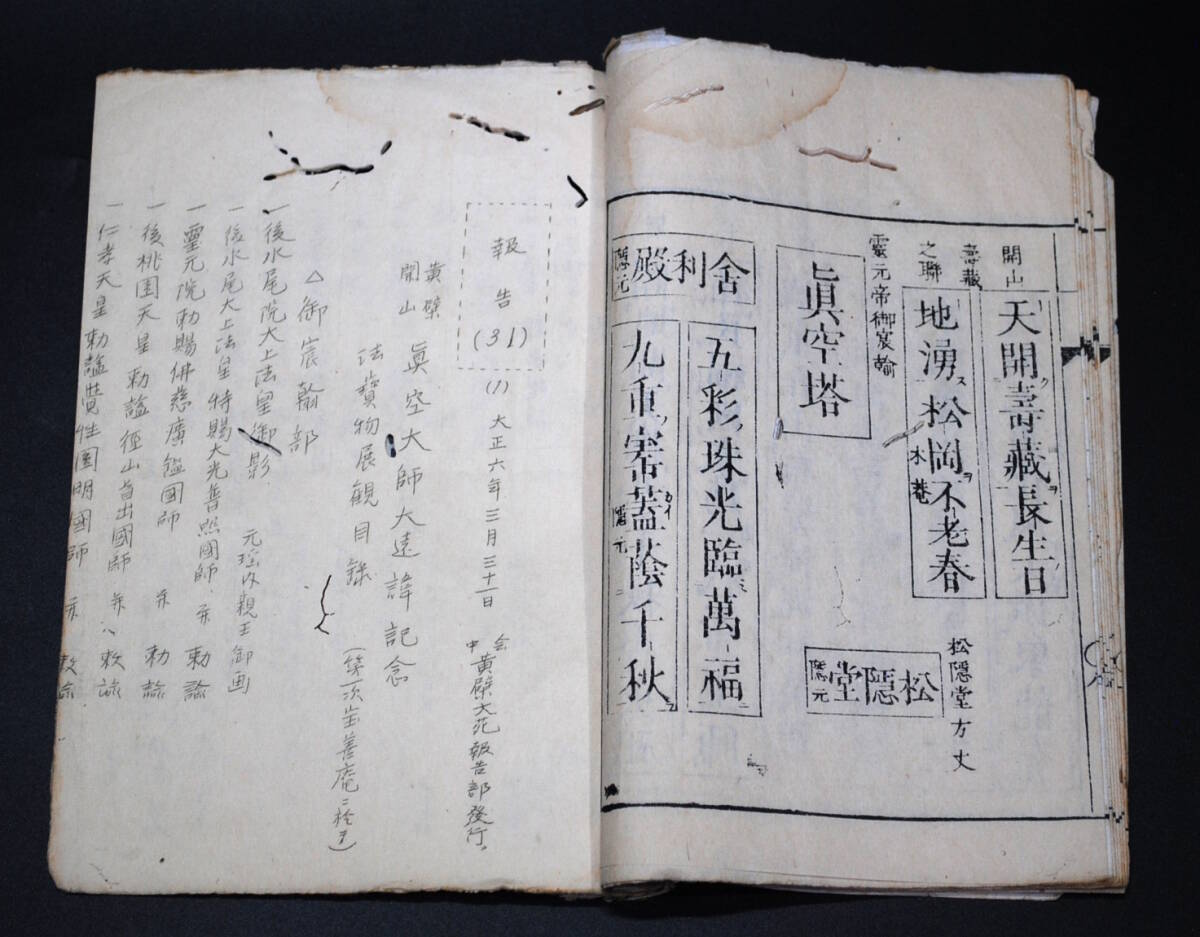 開山
壽藏
之聯
天開壽藏長生日
地湧松岡不老春
木菴
靈元帝御宸翰
眞空塔
松隠堂方丈
松隠堂
隠元
舍利殿
隠元
五彩珠光臨萬福
九重寄蓋蔭千秋
隠元
報告
(31)
(1) 大正六年三月三十一日
黄檗大苑報告部發行。
黄檗
開山
眞空大師大遠諱記念
法寶物展観目録
△御宸翰部
一後水尾院大上法皇御影 元瑶内親王御画
一後水尾大上法皇特賜大光普照國師 勅諭
一靈元院勅賜佛慈廣鑑國師 勅諭
一後桃園天皇勅謚徑山首出國師 敕諭
一仁孝天皇勅謚覺性圓明國師 敕諭